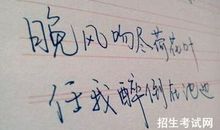 晚风吻尽荷花叶
任我醉倒在池边
招生考试网